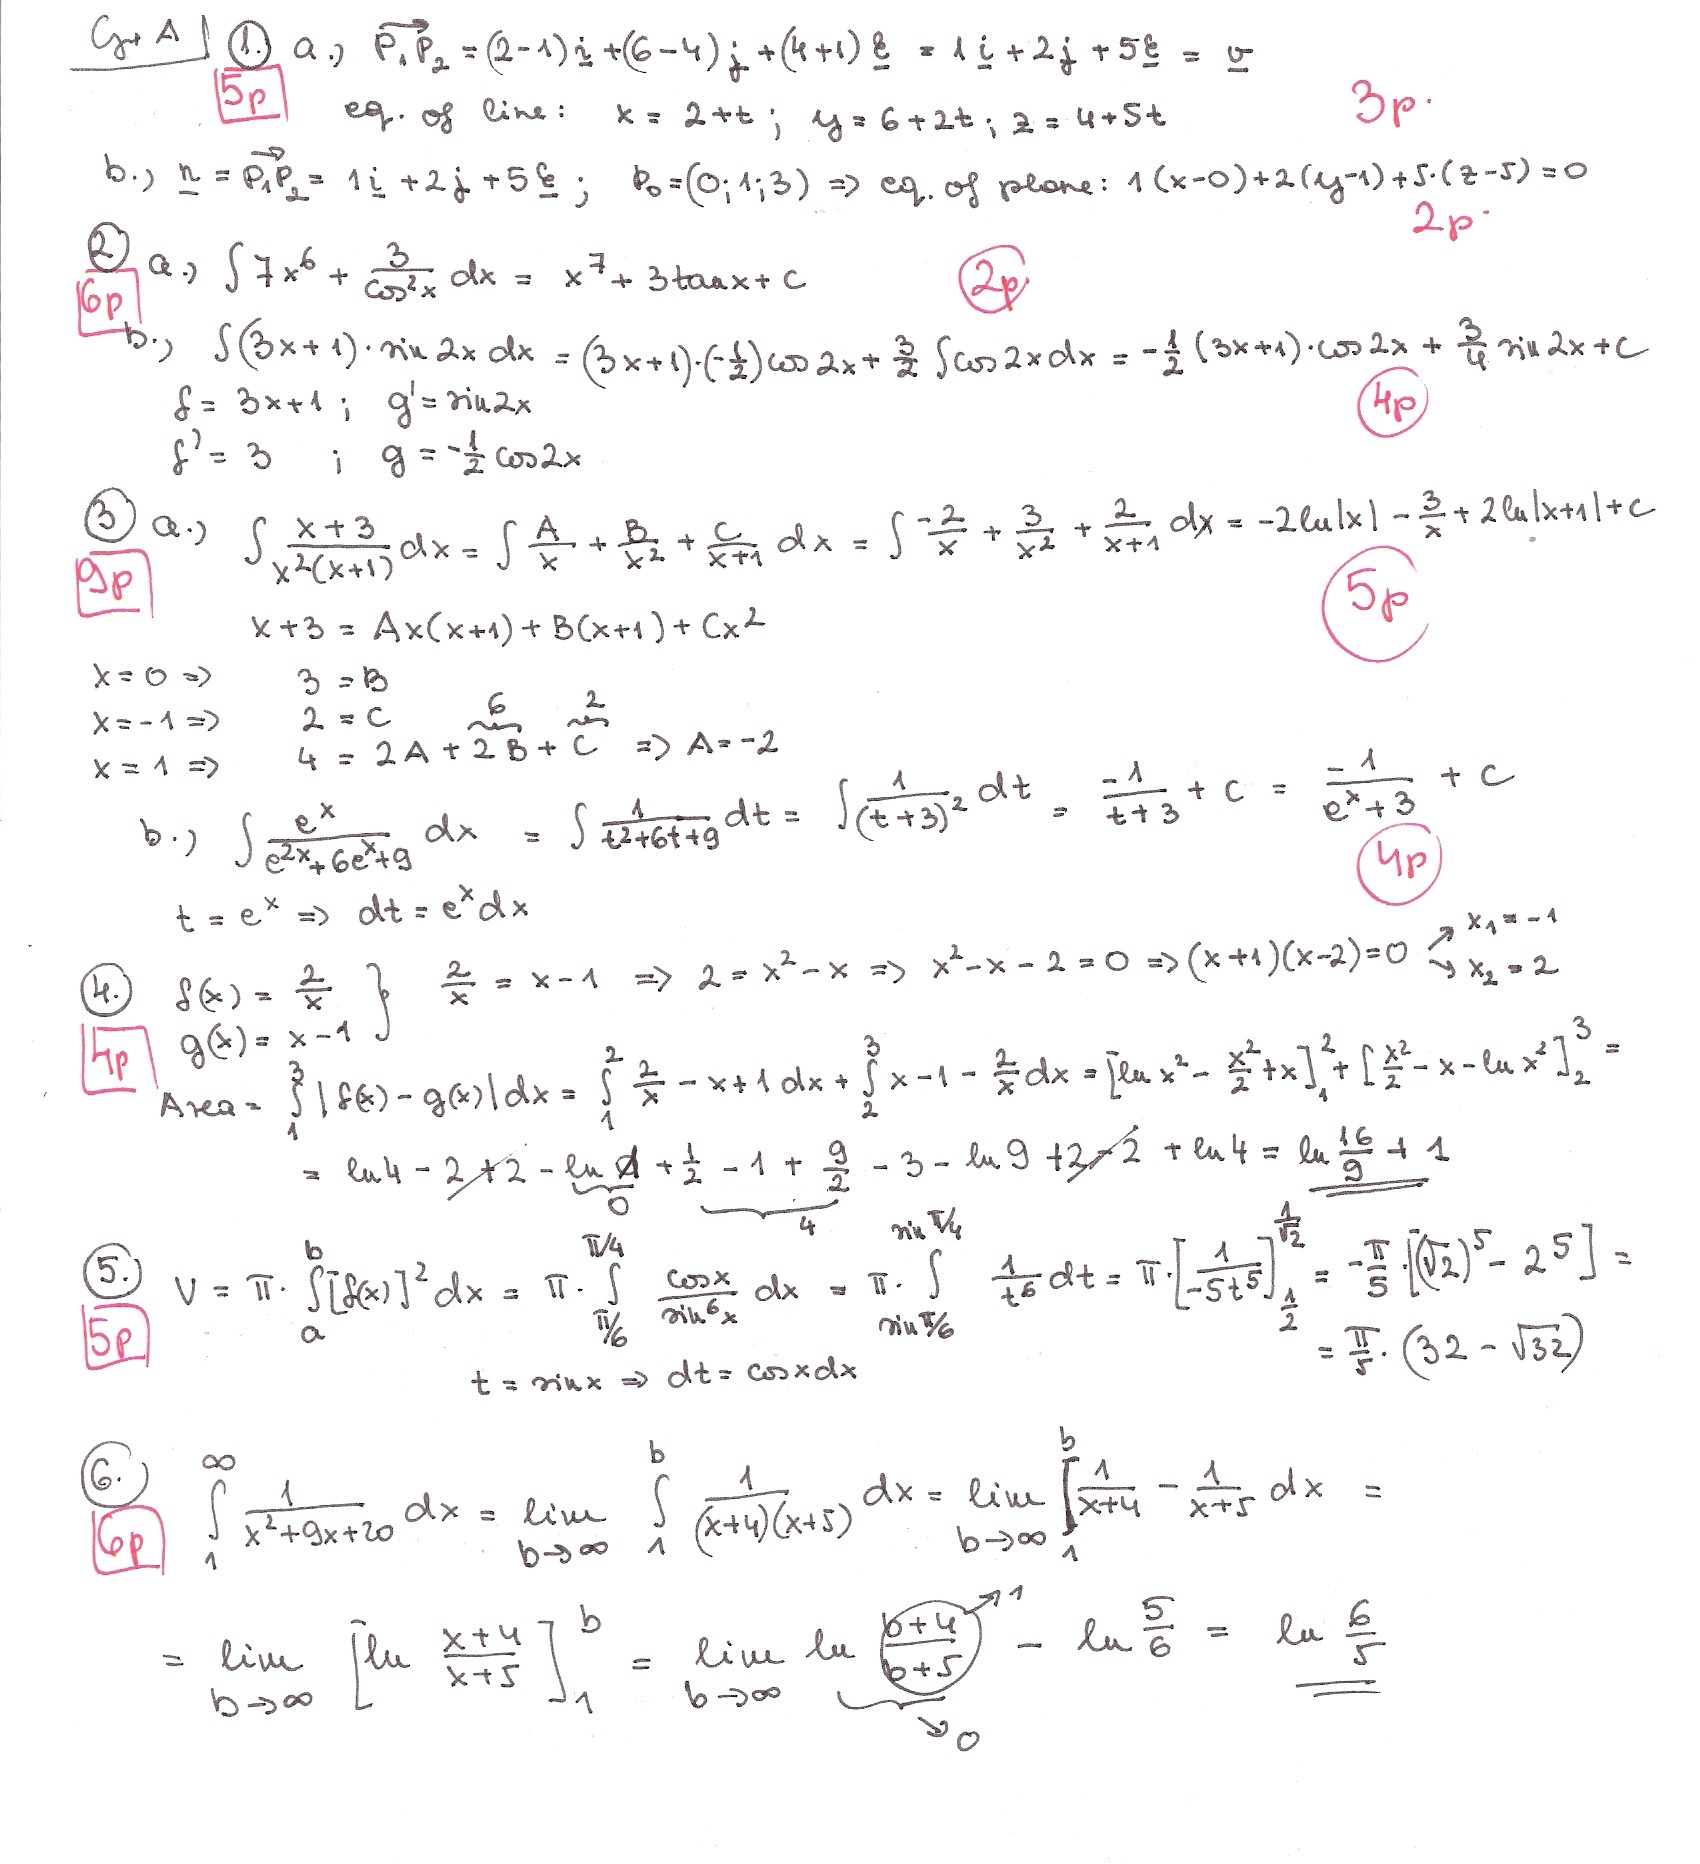 Gr. A 1. a.) P₁P₂ = (2-1)i + (6-4)j + (4+1)k = 1i + 2j + 5k = v
5p
eq. of line: x = 2+t ; y = 6+2t ; z = 4+5t 3p.
b.) n = P₁P₂ = 1i + 2j + 5k ; P₀ = (0;1;3) => eq. of plane: 1(x-0)+2(y-1)+5·(z-5)=0
2p.
2 a.) ∫ 7x⁶ + 3/cos²x dx = x⁷ + 3tanx + C 2p.
6p
b.) ∫(3x+1)·sin 2x dx = (3x+1)·(-1/2)cos 2x + 3/2 ∫cos 2x dx = -1/2 (3x+1)·cos 2x + 3/4 sin 2x + C
f = 3x+1 ; g' = sin2x 4p
f' = 3 ; g = -1/2 cos2x
3 a.) ∫ (x+3)/(x²(x+1)) dx = ∫ A/x + B/x² + C/(x+1) dx = ∫ -2/x + 3/x² + 2/(x+1) dx = -2ln|x| - 3/x + 2ln|x+1| + C
9p 5p
x+3 = Ax(x+1) + B(x+1) + Cx²
x=0 => 3 = B
x=-1 => 2 = C 6 2
x=1 => 4 = 2A + 2B + C => A=-2
b.) ∫ eˣ/(e²ˣ+6eˣ+9) dx = ∫ 1/(t²+6t+9) dt = ∫ 1/(t+3)² dt = -1/(t+3) + C = -1/(eˣ+3) + C
4p
t = eˣ => dt = eˣdx
4. f(x) = 2/x } 2/x = x-1 => 2 = x²-x => x²-x-2=0 => (x+1)(x-2)=0 ↗ x₁=-1 ↘ x₂=2
4p g(x) = x-1
Area = ∫₁³ |f(x)-g(x)|dx = ∫₁² 2/x - x+1 dx + ∫₂³ x-1-2/x dx = [ln x² - x²/2 + x]₁² + [x²/2 - x - ln x²]₂³ =
= ln4 - 2 + 2 - ln 1 + 1/2 - 1 + 9/2 - 3 - ln 9 + 2 - 2 + ln 4 = ln 16/9 + 1
0 4
5. V = π·∫ₐᵇ [f(x)]² dx = π·∫_{π/6}^{π/4} cosx/sin⁶x dx = π·∫_{sin π/6}^{sin π/4} 1/t⁶ dt = π·[1/(-5t⁵)]_{1/2}^{1/√2} = -π/5·[(√2)⁵ - 2⁵] =
5p
t = sinx => dt = cosxdx = π/5·(32 - √32)
6. ∫₁^∞ 1/(x²+9x+20) dx = lim b→∞ ∫₁ᵇ 1/((x+4)(x+5)) dx = lim b→∞ ∫₁ᵇ 1/(x+4) - 1/(x+5) dx =
6p
= lim b→∞ [ln (x+4)/(x+5)]₁ᵇ = lim b→∞ ln (b+4)/(b+5) ↗1 - ln 5/6 = ln 6/5
↘ 0